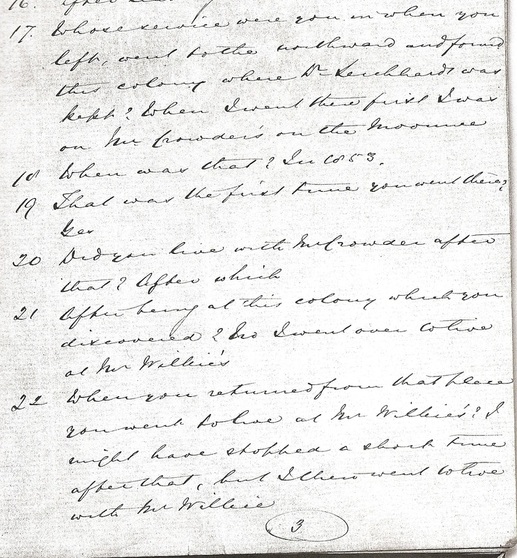 16. After
17. Whose service were you in when you
left, went to the northward and found
this colony where Dr Leichhardt was
kept? When I went there first I was
on Mr Crowder's on the Moonee
18 When was that? In 1853.
19 That was the first time you went there?
Yes
20 Did you live with Mr Crowder after
that? After which
21 After being at this colony which you
discovered? No I went over to live
at Mr Wilkie's
22 When you returned from that place
you went to live at Mr Wilkie's? I
might have stopped a short time
after that, but I then went to live
with Mr Wilkie
3